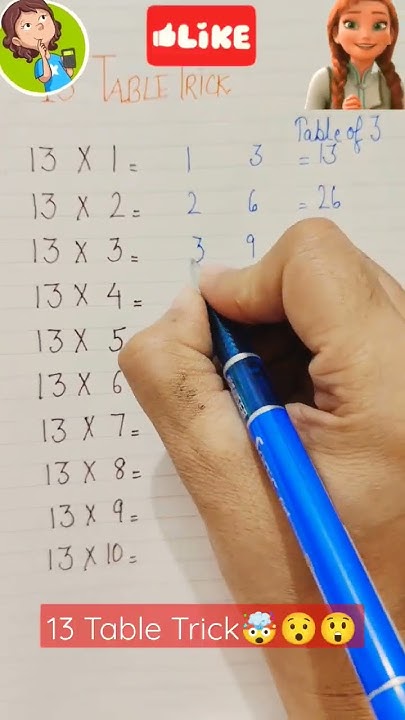 LiKE
13 TABLE TRICK
Table of 3
13 X 1 = 1 3 = 13
13 X 2 = 2 6 = 26
13 X 3 = 3 9
13 X 4 =
13 X 5
13 X 6
13 X 7 =
13 X 8 =
13 X 9 =
13 X 10 =
13 Table Trick🤯😯😲